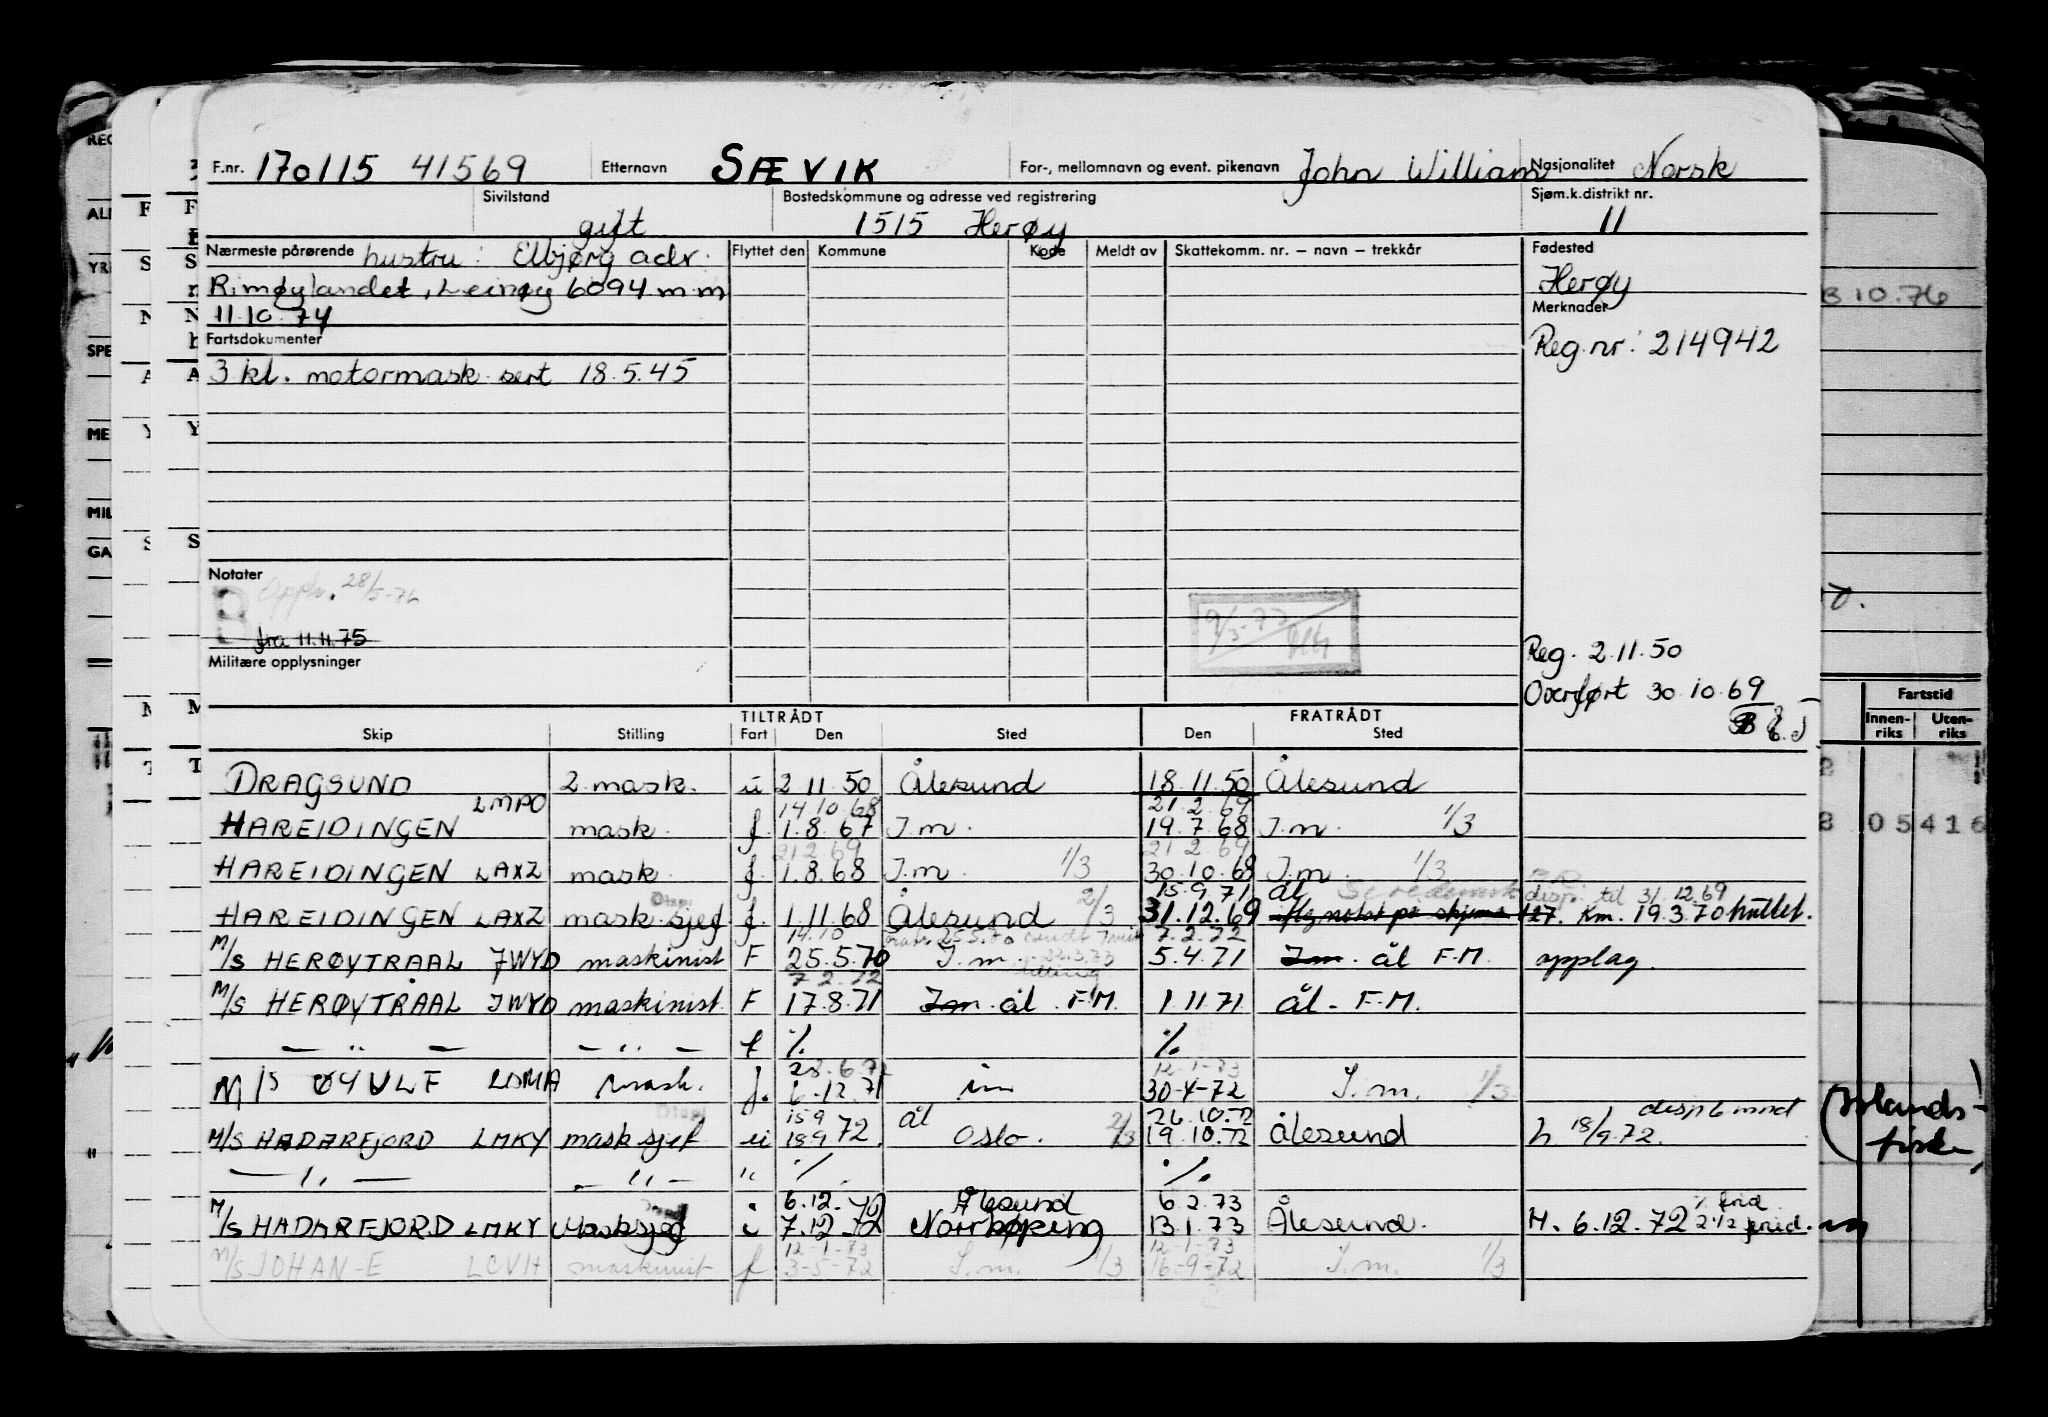 F.nr. 170115 41569 Etternavn SÆVIK For-, mellomnavn og event. pikenavn John William Nasjonalitet Norsk
Sivilstand gift Bostedskommune og adresse ved registrering 1515 Herøy Sjøm.k.distrikt nr. 11
Nærmeste pårørende hustru: Elbjørg adr. Flyttet den Kommune Kode Meldt av Skattekomm. nr. – navn – trekkår Fødested
Rimøylandet, Leinøy 6094 m m Herøy
11.10.74 Merknader
Fartsdokumenter Reg.nr: 214942
3 kl. motormask. sert 18.5.45
Notater
Oppl. 28/5-76
fra 11.11.75
Militære opplysninger
9/3-77
Reg. 2.11.50
Overført 30.10.69
TILTRÅDT FRATRÅDT
Skip Stilling Fart Den Sted Den Sted
DRAGSUND 2 mask. u 2 11.50 Ålesund 18.11.50 Ålesund
LMPO 14 10 68 21.2.69
HAREIDINGEN mask. f. 1.8.67 I.m. 19.7.68 I.m. 1/3
21 2 69 21 2.69
HAREIDINGEN LAXZ mask. f. 1.8.68 I.m. 1/3 30.10.68 I.m. 1/3
15.9.71 ål disp. til 31.12.69
HAREIDINGEN LAXZ mask sjef f. 1.11.68 Ålesund 2/3 31.12.69 Km. 19.3.70 hullet.
14.10 7.2.72
M/S HERØYTRAAL JWYD maskinist F 25.5.70 I.m. 5.4.71 I.m. ål F.M. opplag.
7 2.72
M/S HERØYTRÅAL JWYD maskinist F 17.8.71 I.m. ål. F.M. 1.11.71 ål - F.M.
— „ — — „ — f ./. ./.
28.6.72 12-1-73
M/S ØYULF LDMA mask. f. 6.12.71 im 30-4-72 I.m. 1/3
159 ål 26.10.72 disp 6 mnd
M/S HADARFJORD LMKY mask sjef u 189 72. Oslo. 2/3 19.10.72 Ålesund h. 18/9.72.
— „ — — „ — „ ./. ./.
6.12.72 Ålesund 6 2.73
M/S HADARFJORD LMKY Masksjef u 7.12.72 Norrkøping 13.1.73 Ålesund. H. 6.12.72 2 1/2 frid.
12-1-73 12-1-73
M/S JOHAN-E LCVH maskinist f 3-5-72 I.m. 1/3 16-9-72 I.m. 1/3
10.76
Fartstid
Innen-
riks
Uten-
riks
05416
(Islands-
fiske)